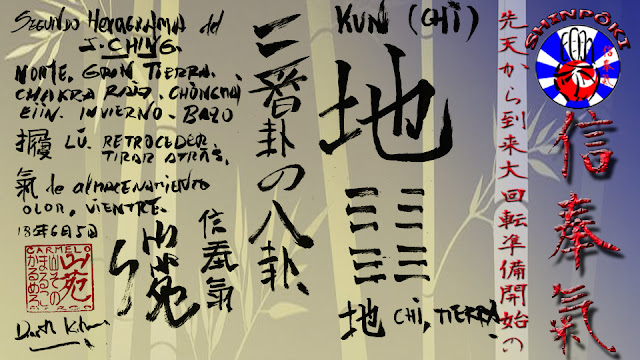 SEGUNDO HEXAGRAMA del
I-CHING.
NORTE, GRAN TIERRA.
CHAKRA RAIZ. CHONGMAI
EIIN. INVIERNO. BAZO
履 LÜ. RETROCEDER
TIRAR ATRÁS,
氣 de almacenamiento
OLOR, VIENTRE.
18年6月5日
CARMELO
信奉氣
二番卦の八卦、
KUN (CHI)
地
地 CHI, TIERRA
先天から到来大回転準備開始の
SHINPÔKI
信奉氣